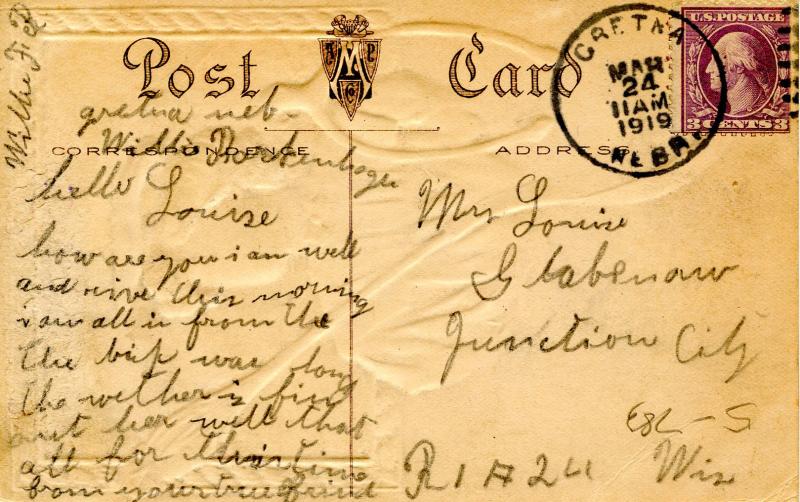 Post Card
A M P Co
U.S. POSTAGE
3 CENTS 3
GRETNA
MAR
24
11 AM
1919
NEBR.
CORRESPONDENCE
ADDRESS
Willie F
gretna neb-
Willie
hello
Louise
how are you i am well
and rive this morning
i am all in from the
the trip was long
the wether is fine
out her well that
all for this time
from your true frind
Mrs Louise
Glabenow
Junction City
R 1 A 24 Wis
E8L-5